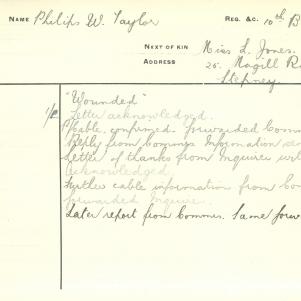 NAME Philips W. Taylor
REG. &C. 10th B
NEXT OF KIN Miss L. Jones.
ADDRESS 25. Magill R
Stepney.
1/2 "Wounded"
Letter acknowledged.
P/cable, confirmed. forwarded Comm
Reply from Commrs Information
Letter of thanks from Inquirer wit
acknowledged.
Further cable information from Co
forwarded Inquirer.
Later report from Commrs. Same forw